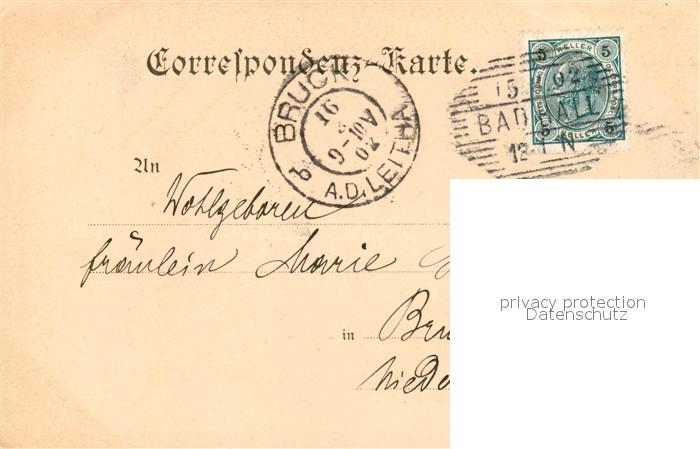 Correspondenz-Karte.
BRUCK
A.D. LEITHA
16
6-9
02
b
5 HELLER 5
5 HELLER 5
15 02
BAD HALL
12-1 N
An
Wohlgeboren
Fräulein Marie
in Bru
Niede
privacy protection
Datenschutz